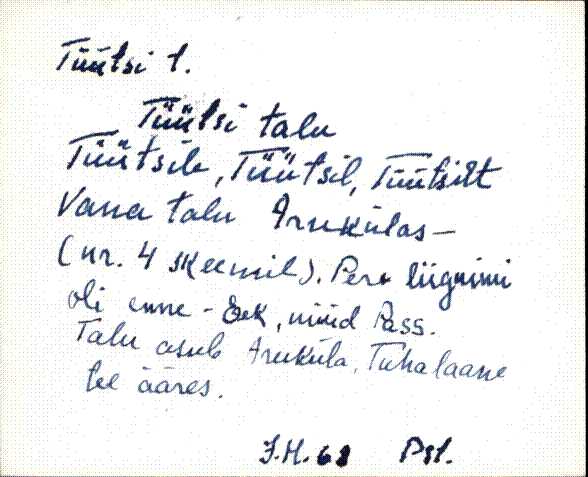 Tüütsi t.
Tüütsi talu
Tüütsile, Tüütsil, Tüütsilt
Vana talu Arukülas –
(nr. 4 skeemil). Pere liignimi
oli enne - Eek, nüüd Pass.
Talu asub Aruküla, Tuhalaane
tee ääres.
J.H. 68 Pst.